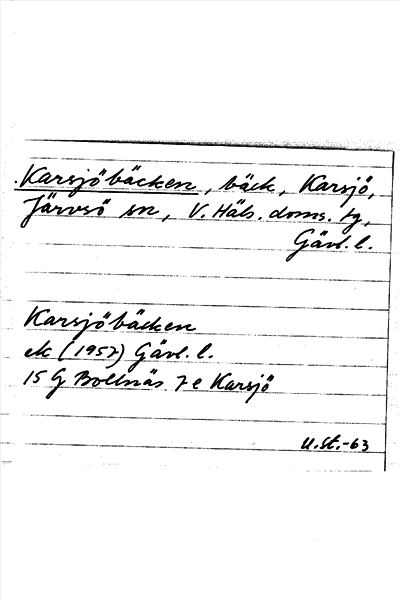 Karsjöbäcken, bäck, Karsjö,
Järvsö sn, V. Häls. doms. tg,
Gävl. l.
Karsjöbäcken
ek (1957) Gävl. l.
15 G Bollnäs 7 e Karsjö
U.St.-63